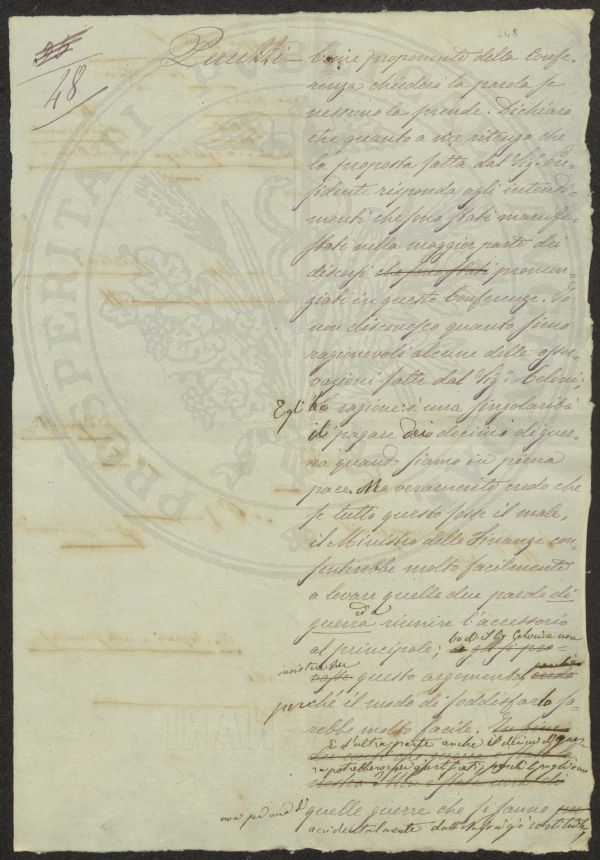 35
48
148
Peruzzi — Come proponente della Confe-
renza chiuderò la parola se
nessuno la prende. Dichiaro
che quanto a me ritengo che
la proposta fatta dal Sigr. Pre-
sidente risponda agli intendi-
menti che sono stati manife-
stati nella maggior parte dei
discorsi che son stati pronun-
ziati in queste Conferenze. Io
non disconosco quanto sieno
ragionevoli alcune delle osser-
vazioni fatte dal Sigr. Celoni;
Egli ha ragione: è una singolarità
il pagare dei decimi di guer-
ra quando siamo in piena
pace. Ma veramente credo che
se tutto questo fosse il male,
il Ministro delle Finanze con-
sentirebbe molto facilmente
a levare quelle due parole di
guerra ed a riunire l'accessorio
al principale;
insistere su questo argomento
perché il modo di soddisfarlo sa-
rebbe molto facile.
E d'altra parte anche il decimo di guer-
quelle guerre che si fanno
accidentalmente